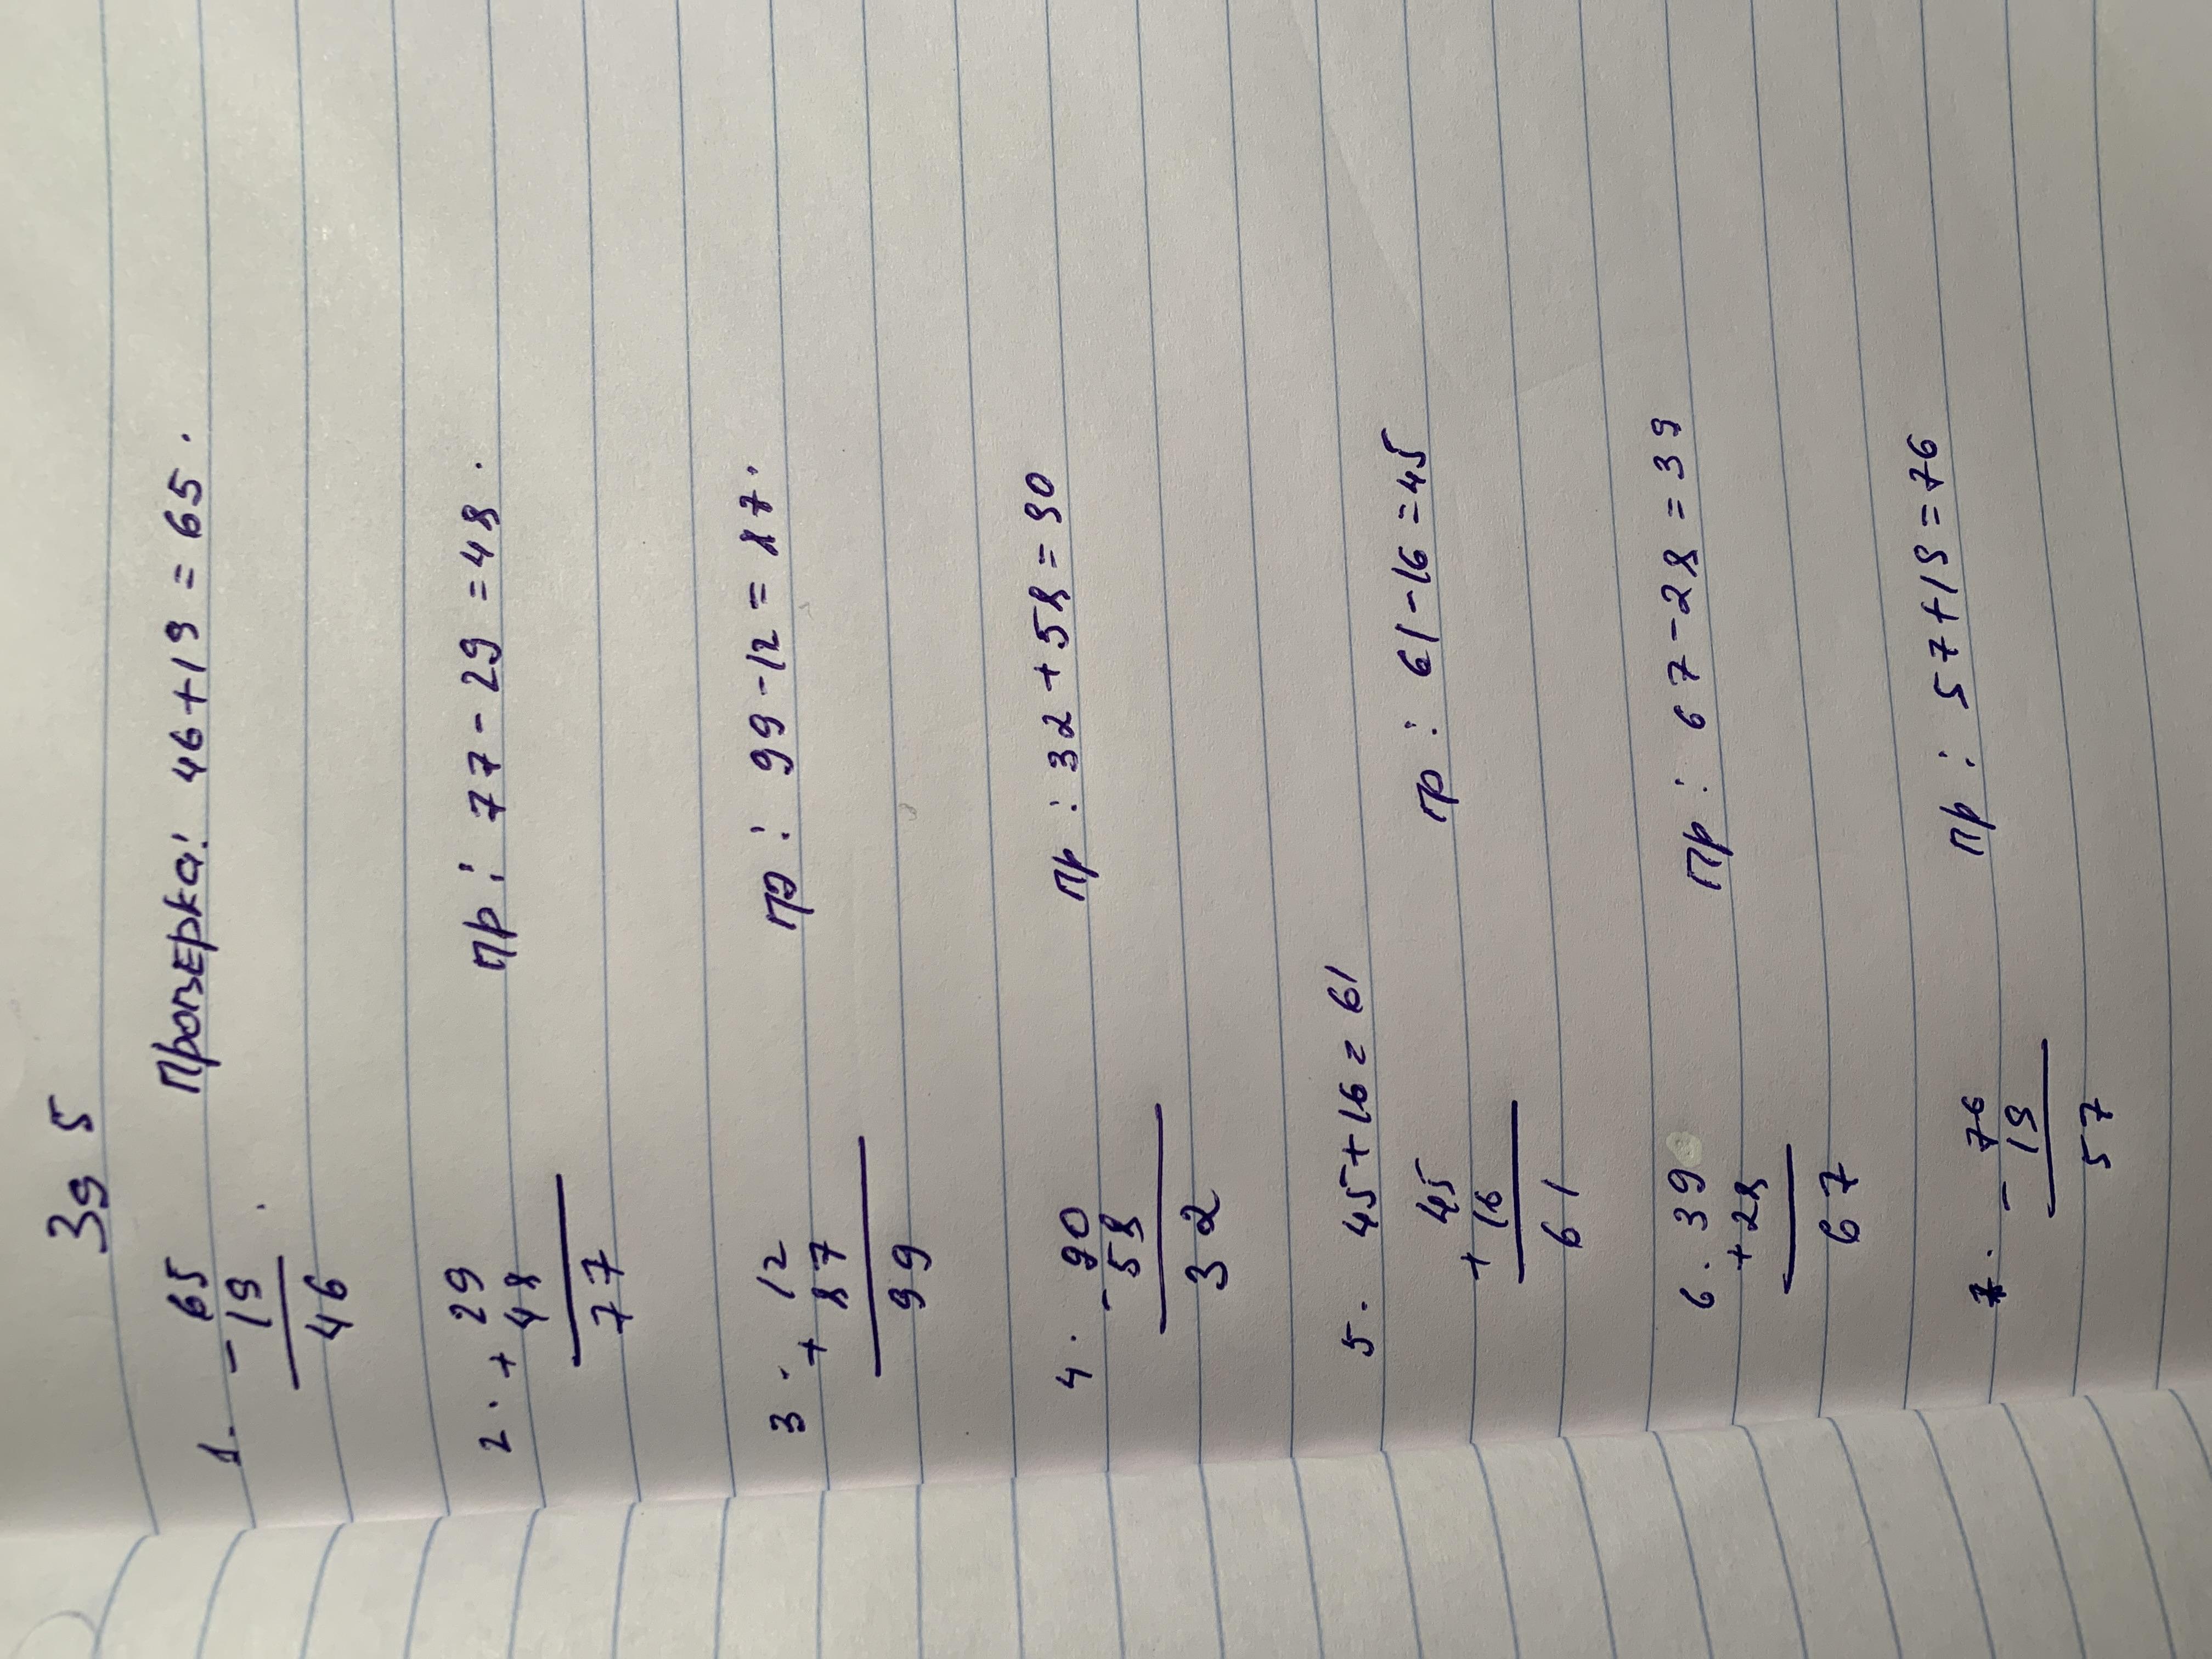 Зд 5
1. 65 Проверка: 46+19 = 65.
- 19
46
2. 29 Пр: 77-29 = 48.
+ 48
77
3. 12 Пр: 99-12 = 87.
+ 87
99
4. 90 Пр: 32+58=90
- 58
32
5. 45+16=61
45 Пр: 61-16=45
+ 16
61
6. 39 Пр: 67-28=39
+28
67
7. 76 Пр: 57+19=76
- 19
57